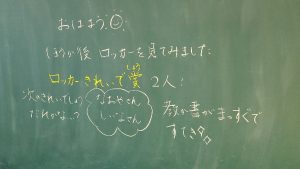 おはよう
ほうか後 ロッカーを見てみました
ロッカーきれいで賞 2人!
しょう
次のきれいでしょう
だれかな…?
なおやさん
教か書がまっすぐで
すてき。